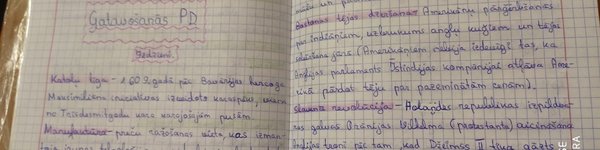 Gatavošanās PD
Jēdzieni.
Katoļu līga - 1609. gadā pēc Bavārijas hercoga
Maksimiliāna iniciatīvas izveidota karaspēks, viena
no Trīsdesmitgadu kara karojošajām pusēm
Manufaktūra - preču ražošanas vieta, kas izman-
Bostonas tējas dzeršana - Amerikāņu pārģērbšanās
par indiāņiem, uzbrukums angļu kuģiem un tējas
izbēršana jūrā (Amerikāņiem nepatīk tas, ka
Anglijas parlaments Ostindijas kompānijai atļāva Ame-
rikā pārdot tēju par pazeminātām cenām).
Slavenā revolūcija - Holandes republikas izpilddva-
ras galvas Orānijas Vilhelma (protestanta) aicināšana
Anglijas tronī pēc tam, kad Džeimss II tika gāzts